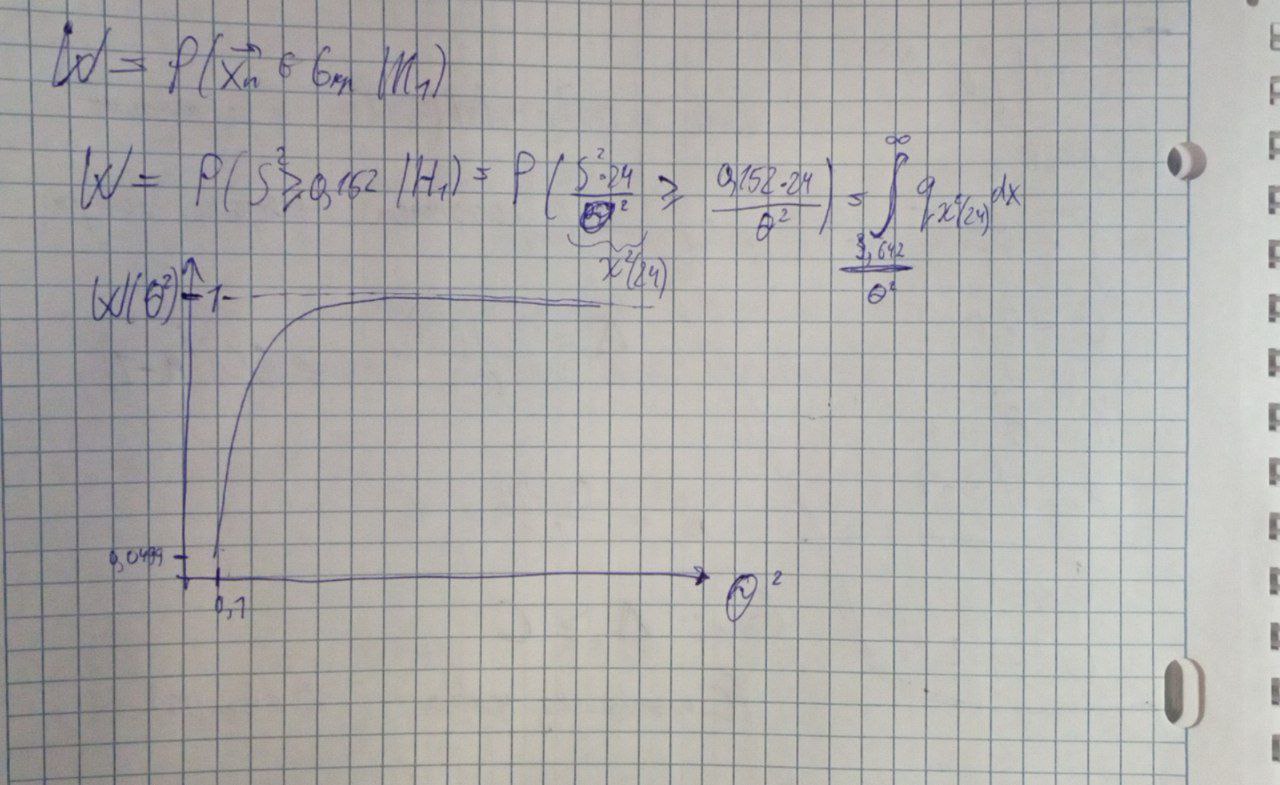 W = P(x⃗ₙ ∈ Gкр | H₁)
W = P(S² ≥ 0,152 | H₁) = P( S²·24 / θ² ≥ 0,152·24 / θ² ) = ∫ 3,642/θ² ∞ q χ²(24) dx
χ²(24)
W(θ²) 1
0,0499
0,1
θ²